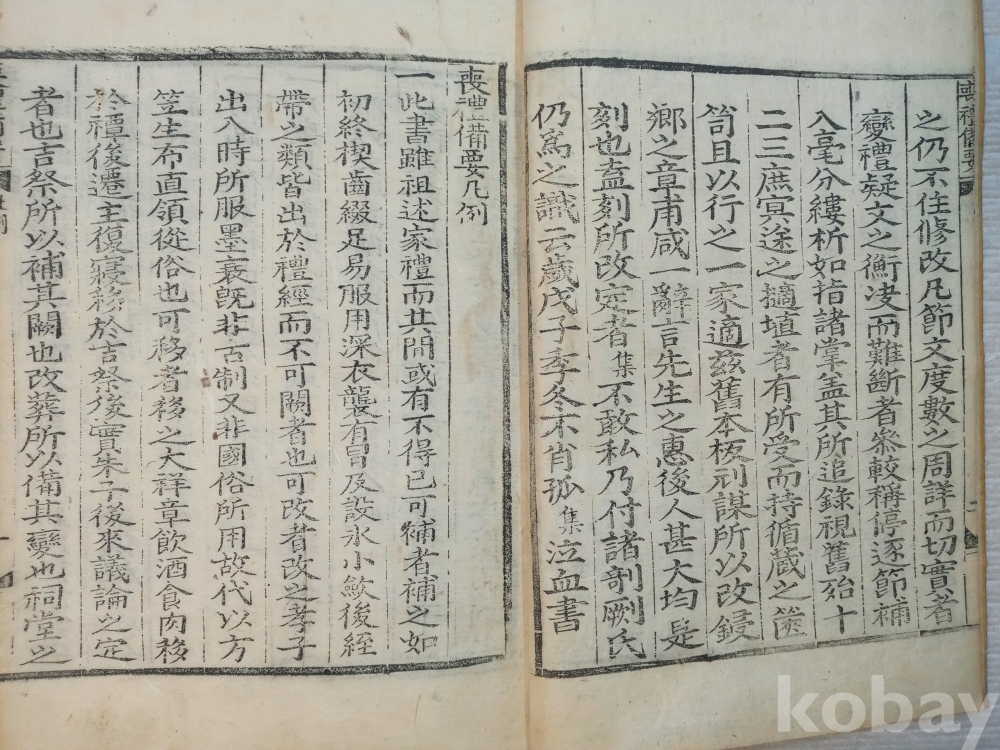 喪禮備要
二
之仍不住修改凡節文度數之周詳而切實者
變禮疑文之衡决而難斷者叅較稱停逐節補
入毫分縷析如指諸掌盖其所追錄視舊殆十
二三庶冥途之擿埴者有所受而持循蔵之篋
笥且以行之一家適玆舊本板刓謀所以改鋟
鄕之章甫咸一辭言先生之惠後人甚大均是
刻也盍刻所改定者集不敢私乃付諸剞劂氏
仍寫之識云歲戊子季冬不肖孤集泣血書
喪禮備要凡例
一此書雖祖述家禮而其間或有不得已可補者補之如
初終楔齒綴足易服用深衣襲有冒及設氷小斂後絰
帶之類皆出於禮經而不可闕者也可改者改之孝子
出入時所服墨衰旣非古制又非國俗所用故代以方
笠生布直領從俗也可移者移之大祥章飮酒食肉移
於禫後遷主復寢移於吉祭後實朱子後來議論之定
者也吉祭所以補其闕也改葬所以備其變也祠堂之
一
kobay